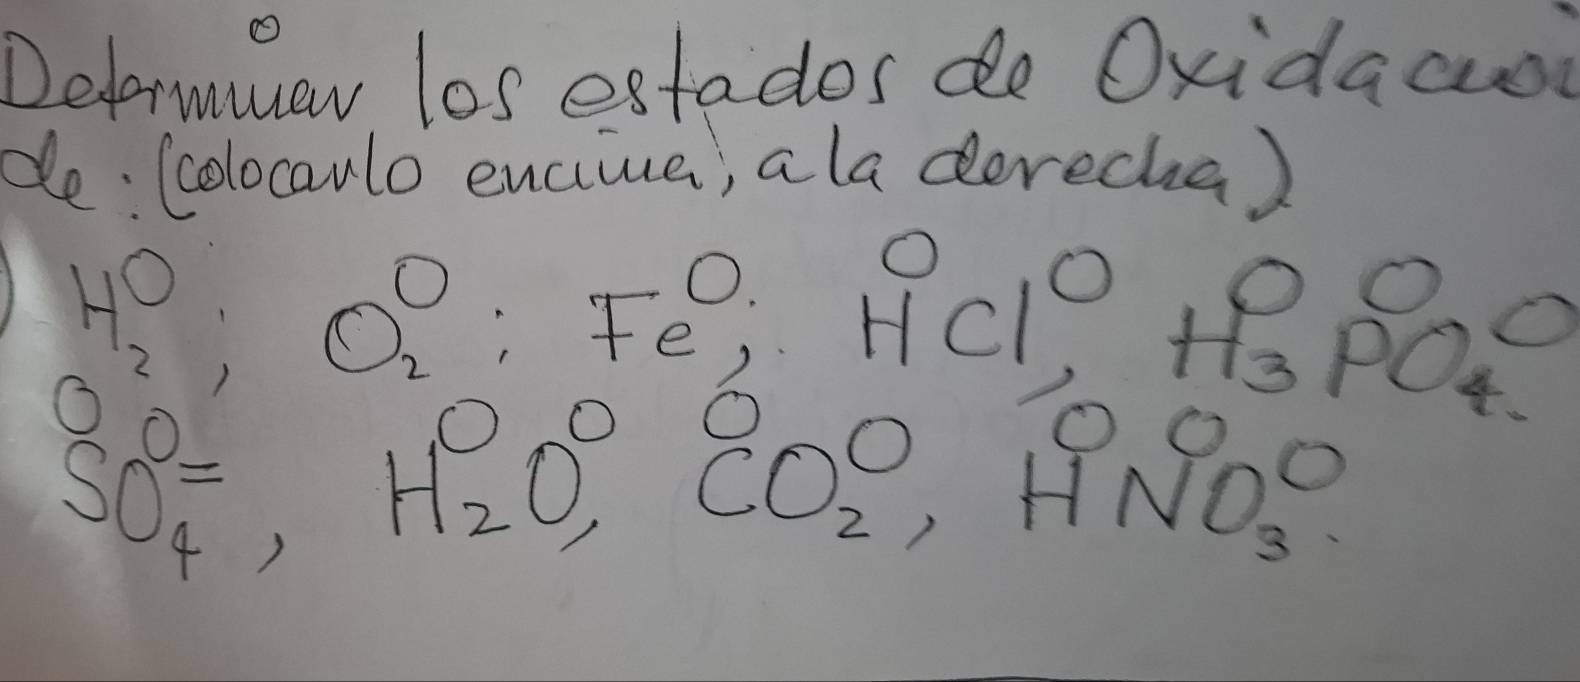 Determinar los estados de Oxidacio
de: (colocarlo encima, a la derecha)
H₂⁰; O₂⁰; Fe⁰; H⁰Cl⁰, H₃⁰P⁰O₄⁰.
S⁰O₄⁰⁼, H₂⁰O⁰, C⁰O₂⁰, H⁰N⁰O₃⁰.